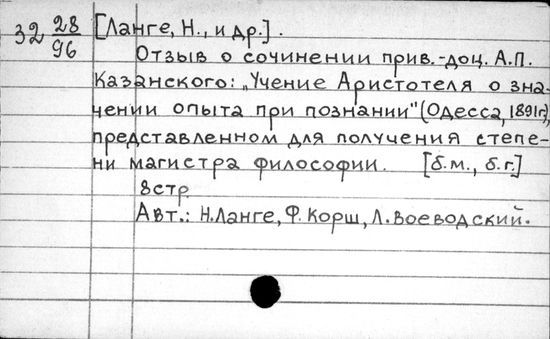 32 28/96 [Ланге, Н., и др.].
Отзыв о сочинении прив.-доц. А.П.
Казанского: „Учение Аристотеля о зна-
чении опыта при познании" (Одесса, 1891г),
представленном для получения степе-
ни магистра философии. [б.м., б.г.]
8стр.
Авт.: Н.Ланге, Ф.Корш, Л.Воеводский.